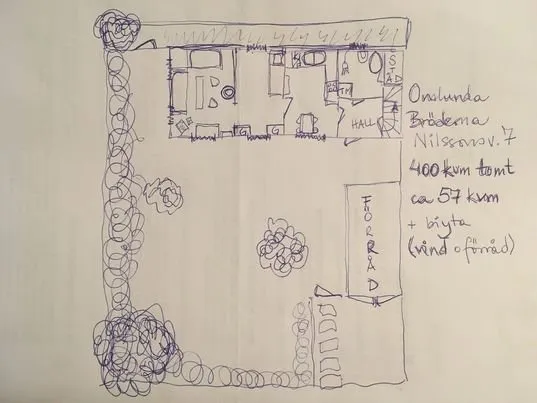 STÄD
TM
HALL
G
G
FÖRRÅD
Onslunda
Bröderna
Nilssonsv. 7
400 kvm tomt
ca 57 kvm
+ biyta
(vind o förråd)